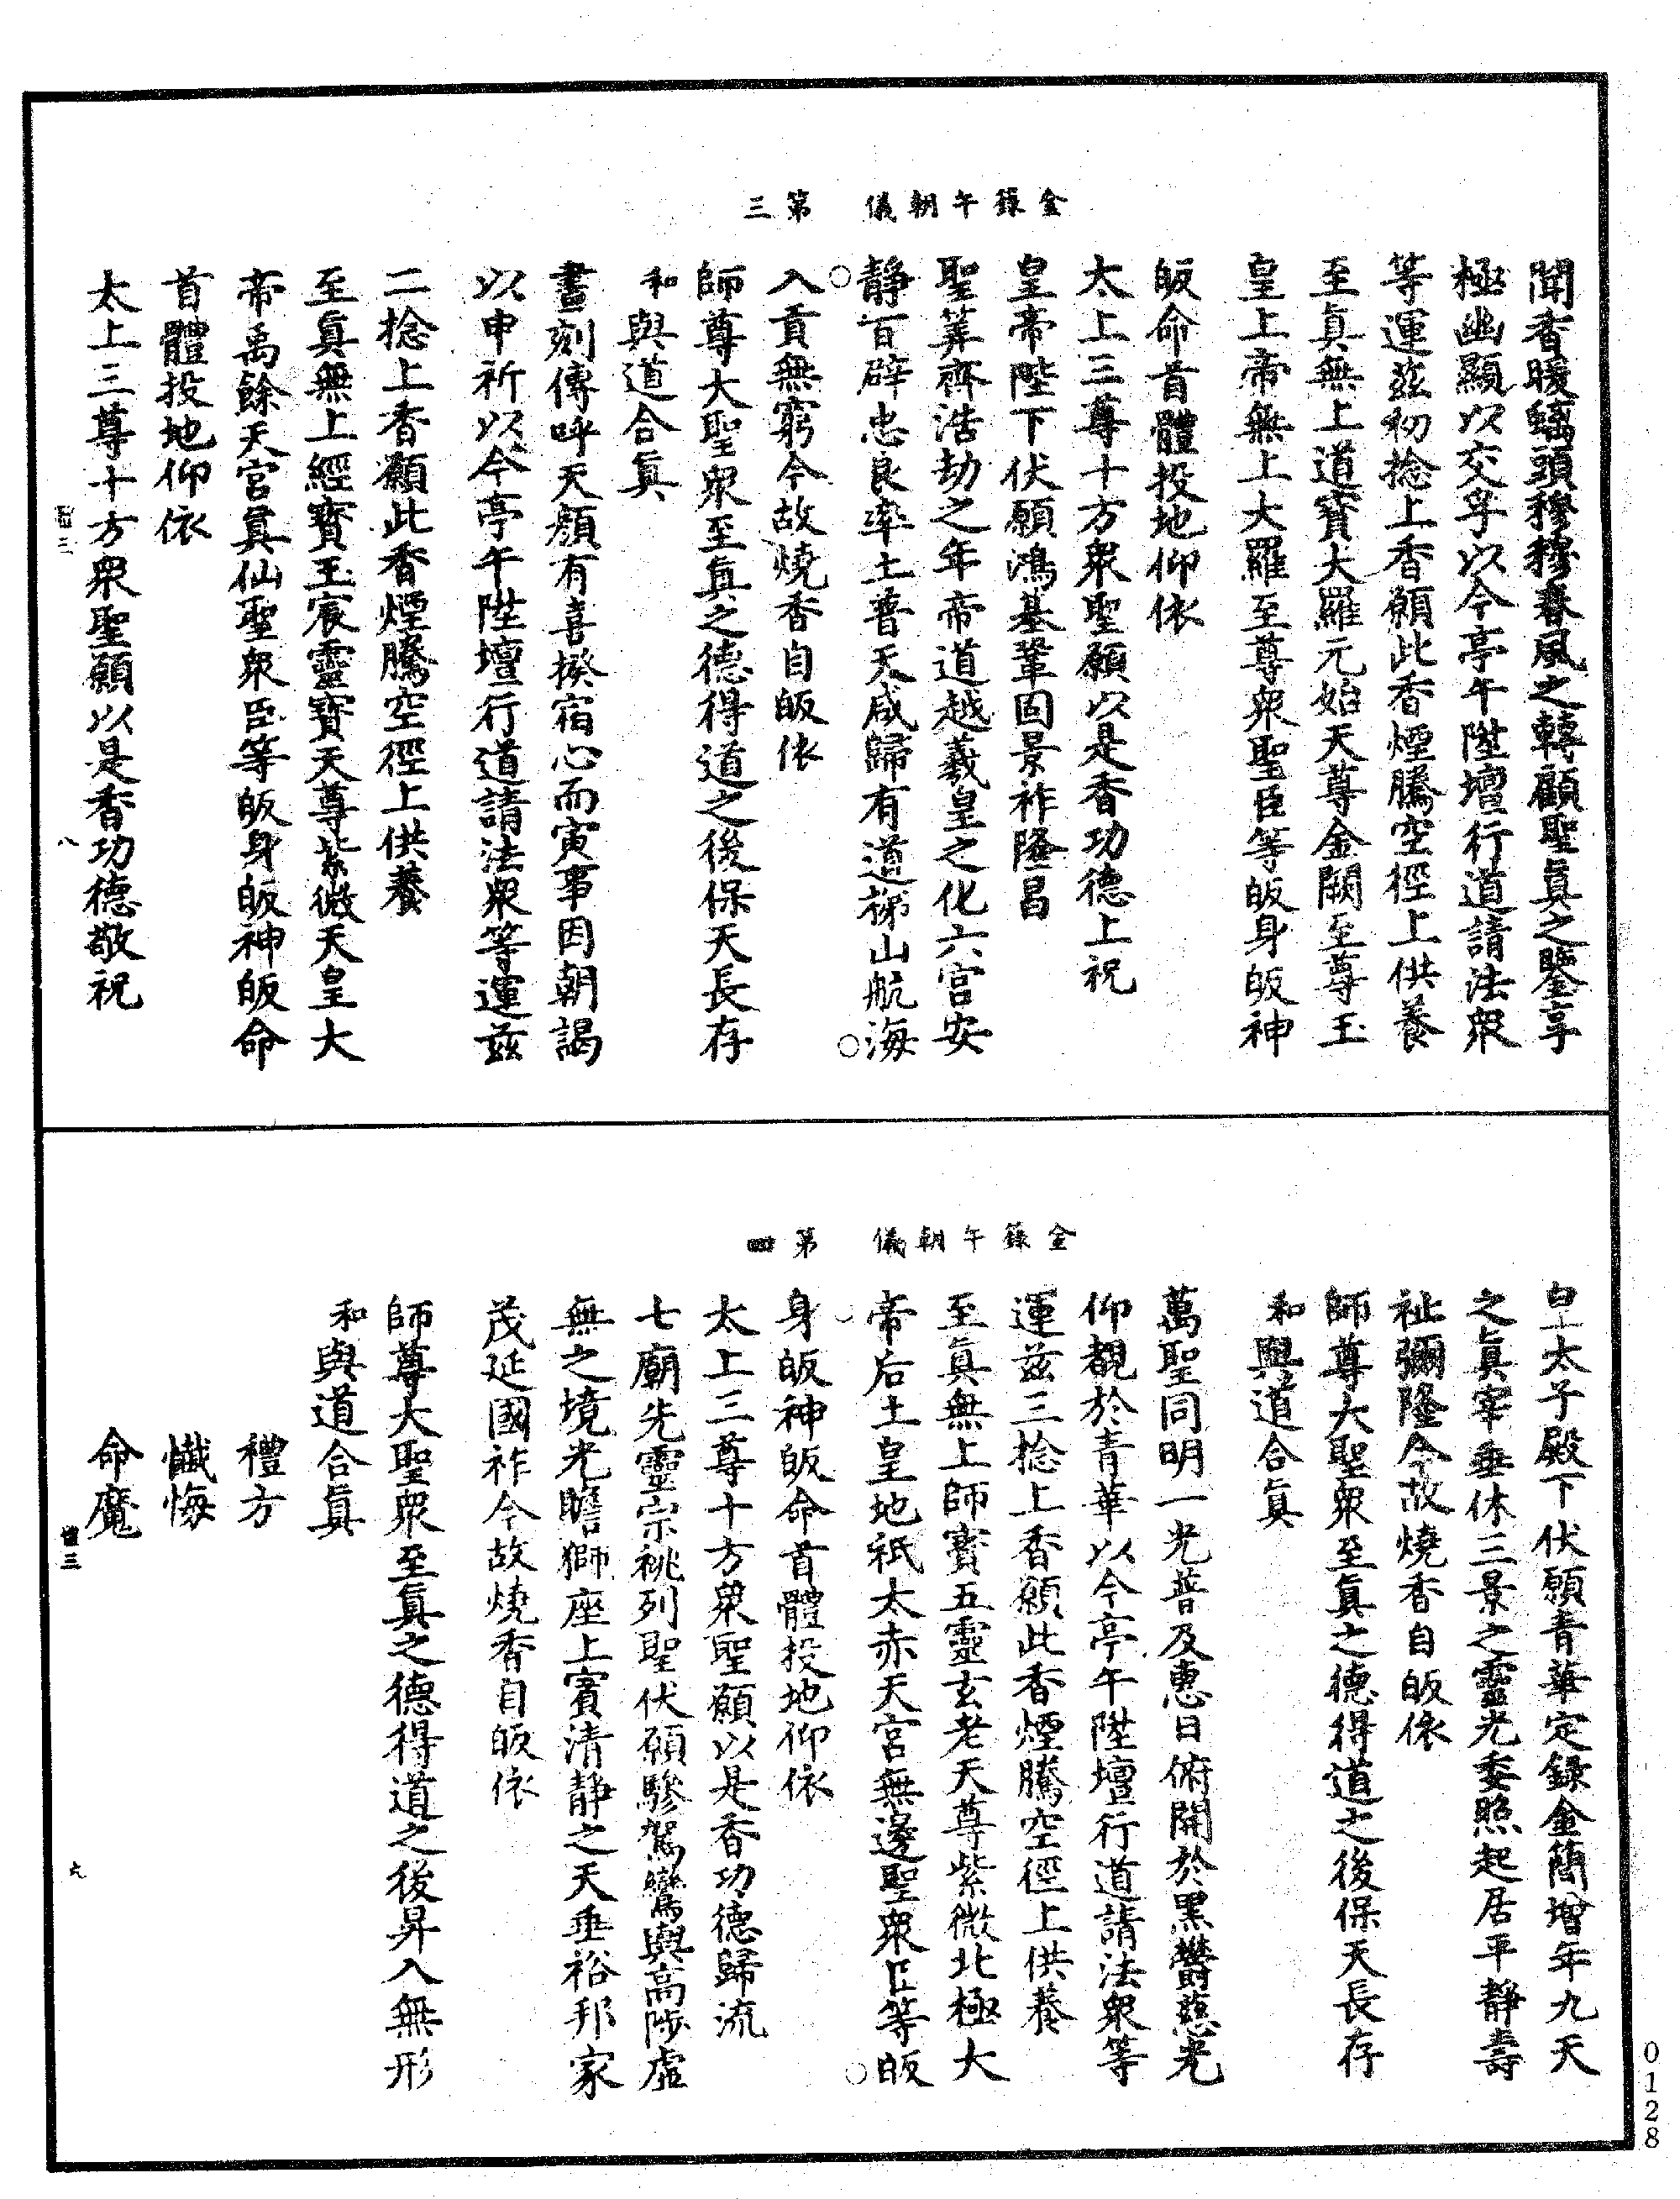 金籙午朝儀　第三
聞香暖螭頭穆穆春風之轉顧聖眞之鑒享
極幽顯以交孚以今亭午陞壇行道請法眾
等運茲初捻上香願此香煙騰空徑上供養
至眞無上道寶大羅元始天尊金闕至尊玉
皇上帝無上大羅至尊眾聖臣等皈身皈神
皈命首體投地仰依
太上三尊十方眾聖願以是香功德上祝
皇帝陛下伏願鴻基鞏固景祚隆昌
聖筭齊浩劫之年帝道越羲皇之化六宮安
靜百辟忠良率土普天咸歸有道梯山航海
入貢無窮今故燒香自皈依
師尊大聖眾至眞之德得道之後保天長存
和與道合眞
晝刻傳呼天顏有喜揆宿心而寅事因朝謁
以申祈以今亭午陞壇行道請法眾等運茲
二捻上香願此香煙騰空徑上供養
至眞無上經寶玉宸靈寶天尊紫微天皇大
帝禹餘天宮眞仙聖眾臣等皈身皈神皈命
首體投地仰依
太上三尊十方眾聖願以是香功德敬祝
三
八
金籙午朝儀　第四
皇太子殿下伏願青華定錄金簡增年九天
之眞宰垂休三景之靈光委照起居平靜壽
祉彌隆今故燒香自皈依
師尊大聖眾至眞之德得道之後保天長存
和與道合眞
萬聖同明一光普及惠日俯開於黑欝慈光
仰覩於青華以今亭午陞壇行道請法眾等
運茲三捻上香願此香煙騰空徑上供養
至眞無上師寶五靈玄老天尊紫微北極大
帝后土皇地祇太赤天宮無邊聖眾臣等皈
身皈神皈命首體投地仰依
太上三尊十方眾聖願以是香功德歸流
七廟先靈宗祧列聖伏願驂駕鸞輿高陟虛
無之境光瞻獅座上賓清靜之天垂裕邦家
茂延國祚今故燒香自皈依
師尊大聖眾至眞之德得道之後昇入無形
和與道合眞
禮方
懺悔
命魔
三
九
0128